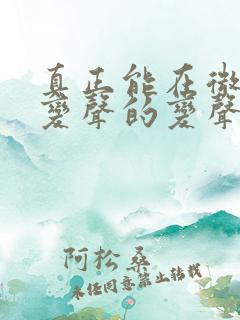 真正能在微
变聲的变聲
阿松桑
未经同意禁止转载